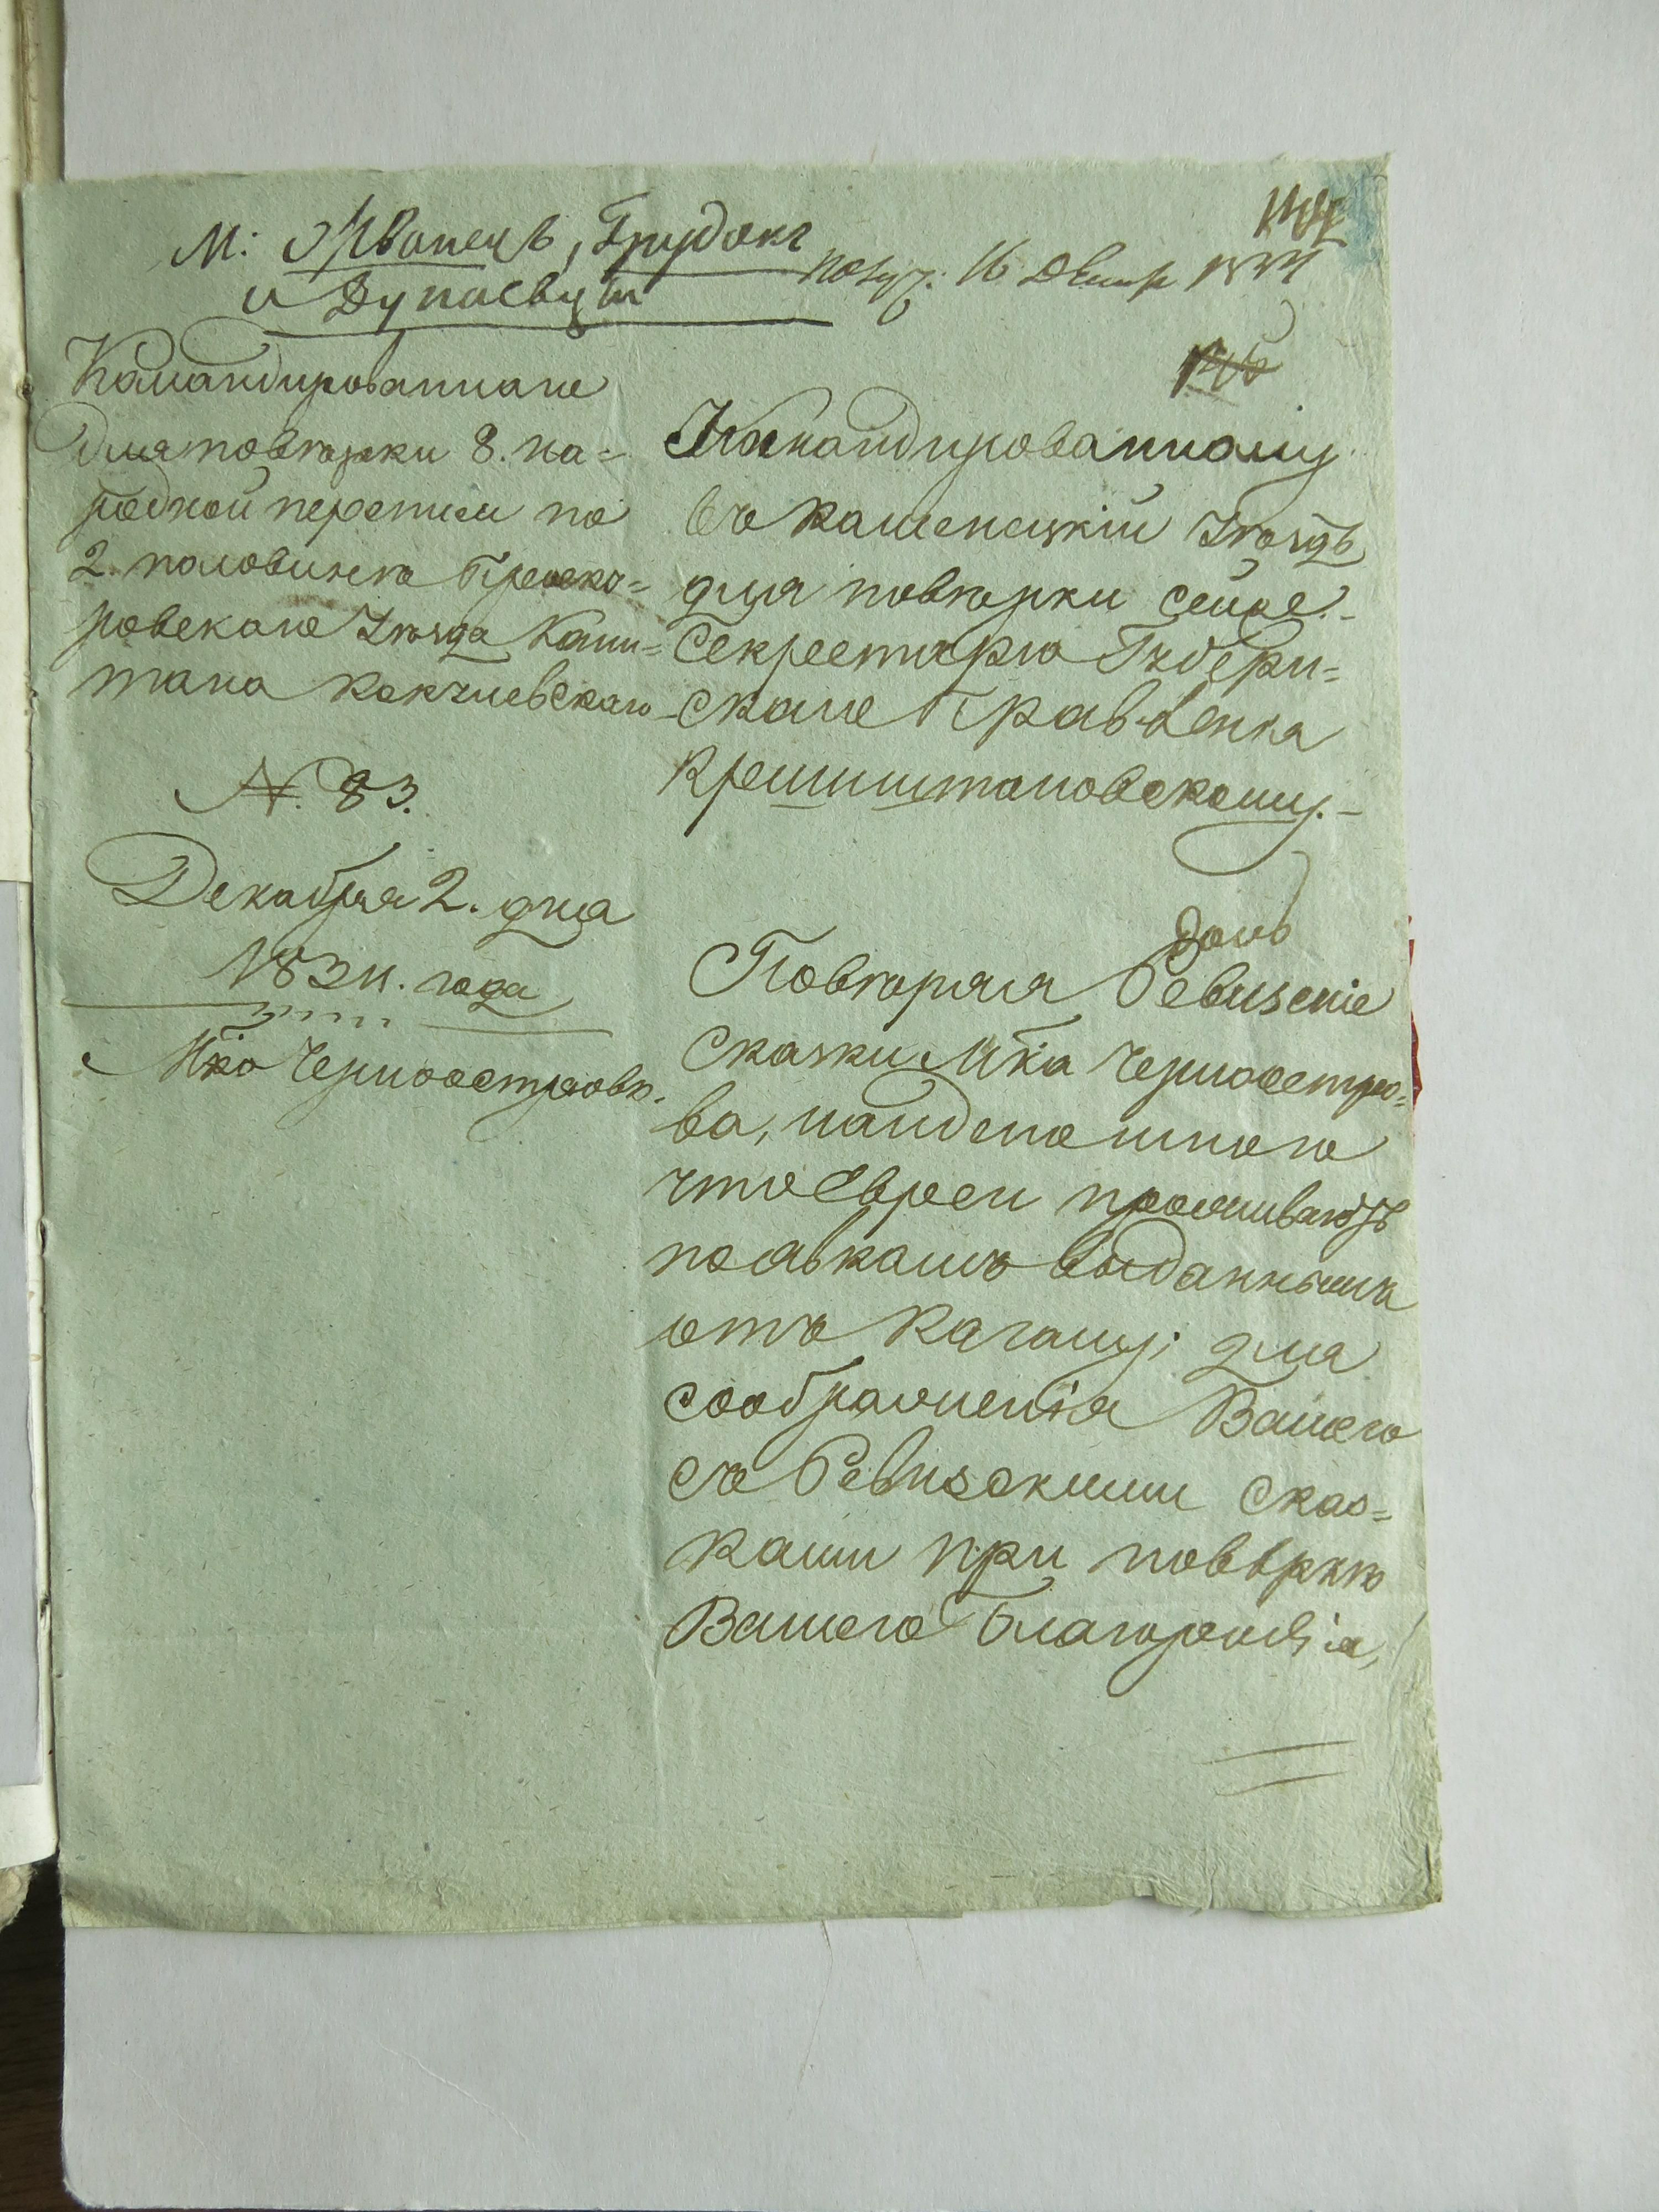 М: Жванецъ, Грудокъ
и Дунаевцы
Получ: 16 Декабр 1834
Командированнаго
для повѣрки 8. на=
родной переписи по
2. половинѣ Проску=
ровскаго Уѣзда Капи=
тана
N. 83.
Декабря 2. дня
1834. года
М̃ко Черноостровъ.
Командированному
въ Каменецкій Уѣздъ
для повѣрки
Секретарю Губерн=
скаго Правленія
Повѣряя Ревизскіе
Сказки М̃ка Черноостро=
ва, найдено мною
что Евреи проживаютъ
по явкамъ выданнымъ
отъ Кагалу; для
соображенія Вашего
съ Ревизскими Сказ=
ками при повѣркѣ
Вашего Благородія,